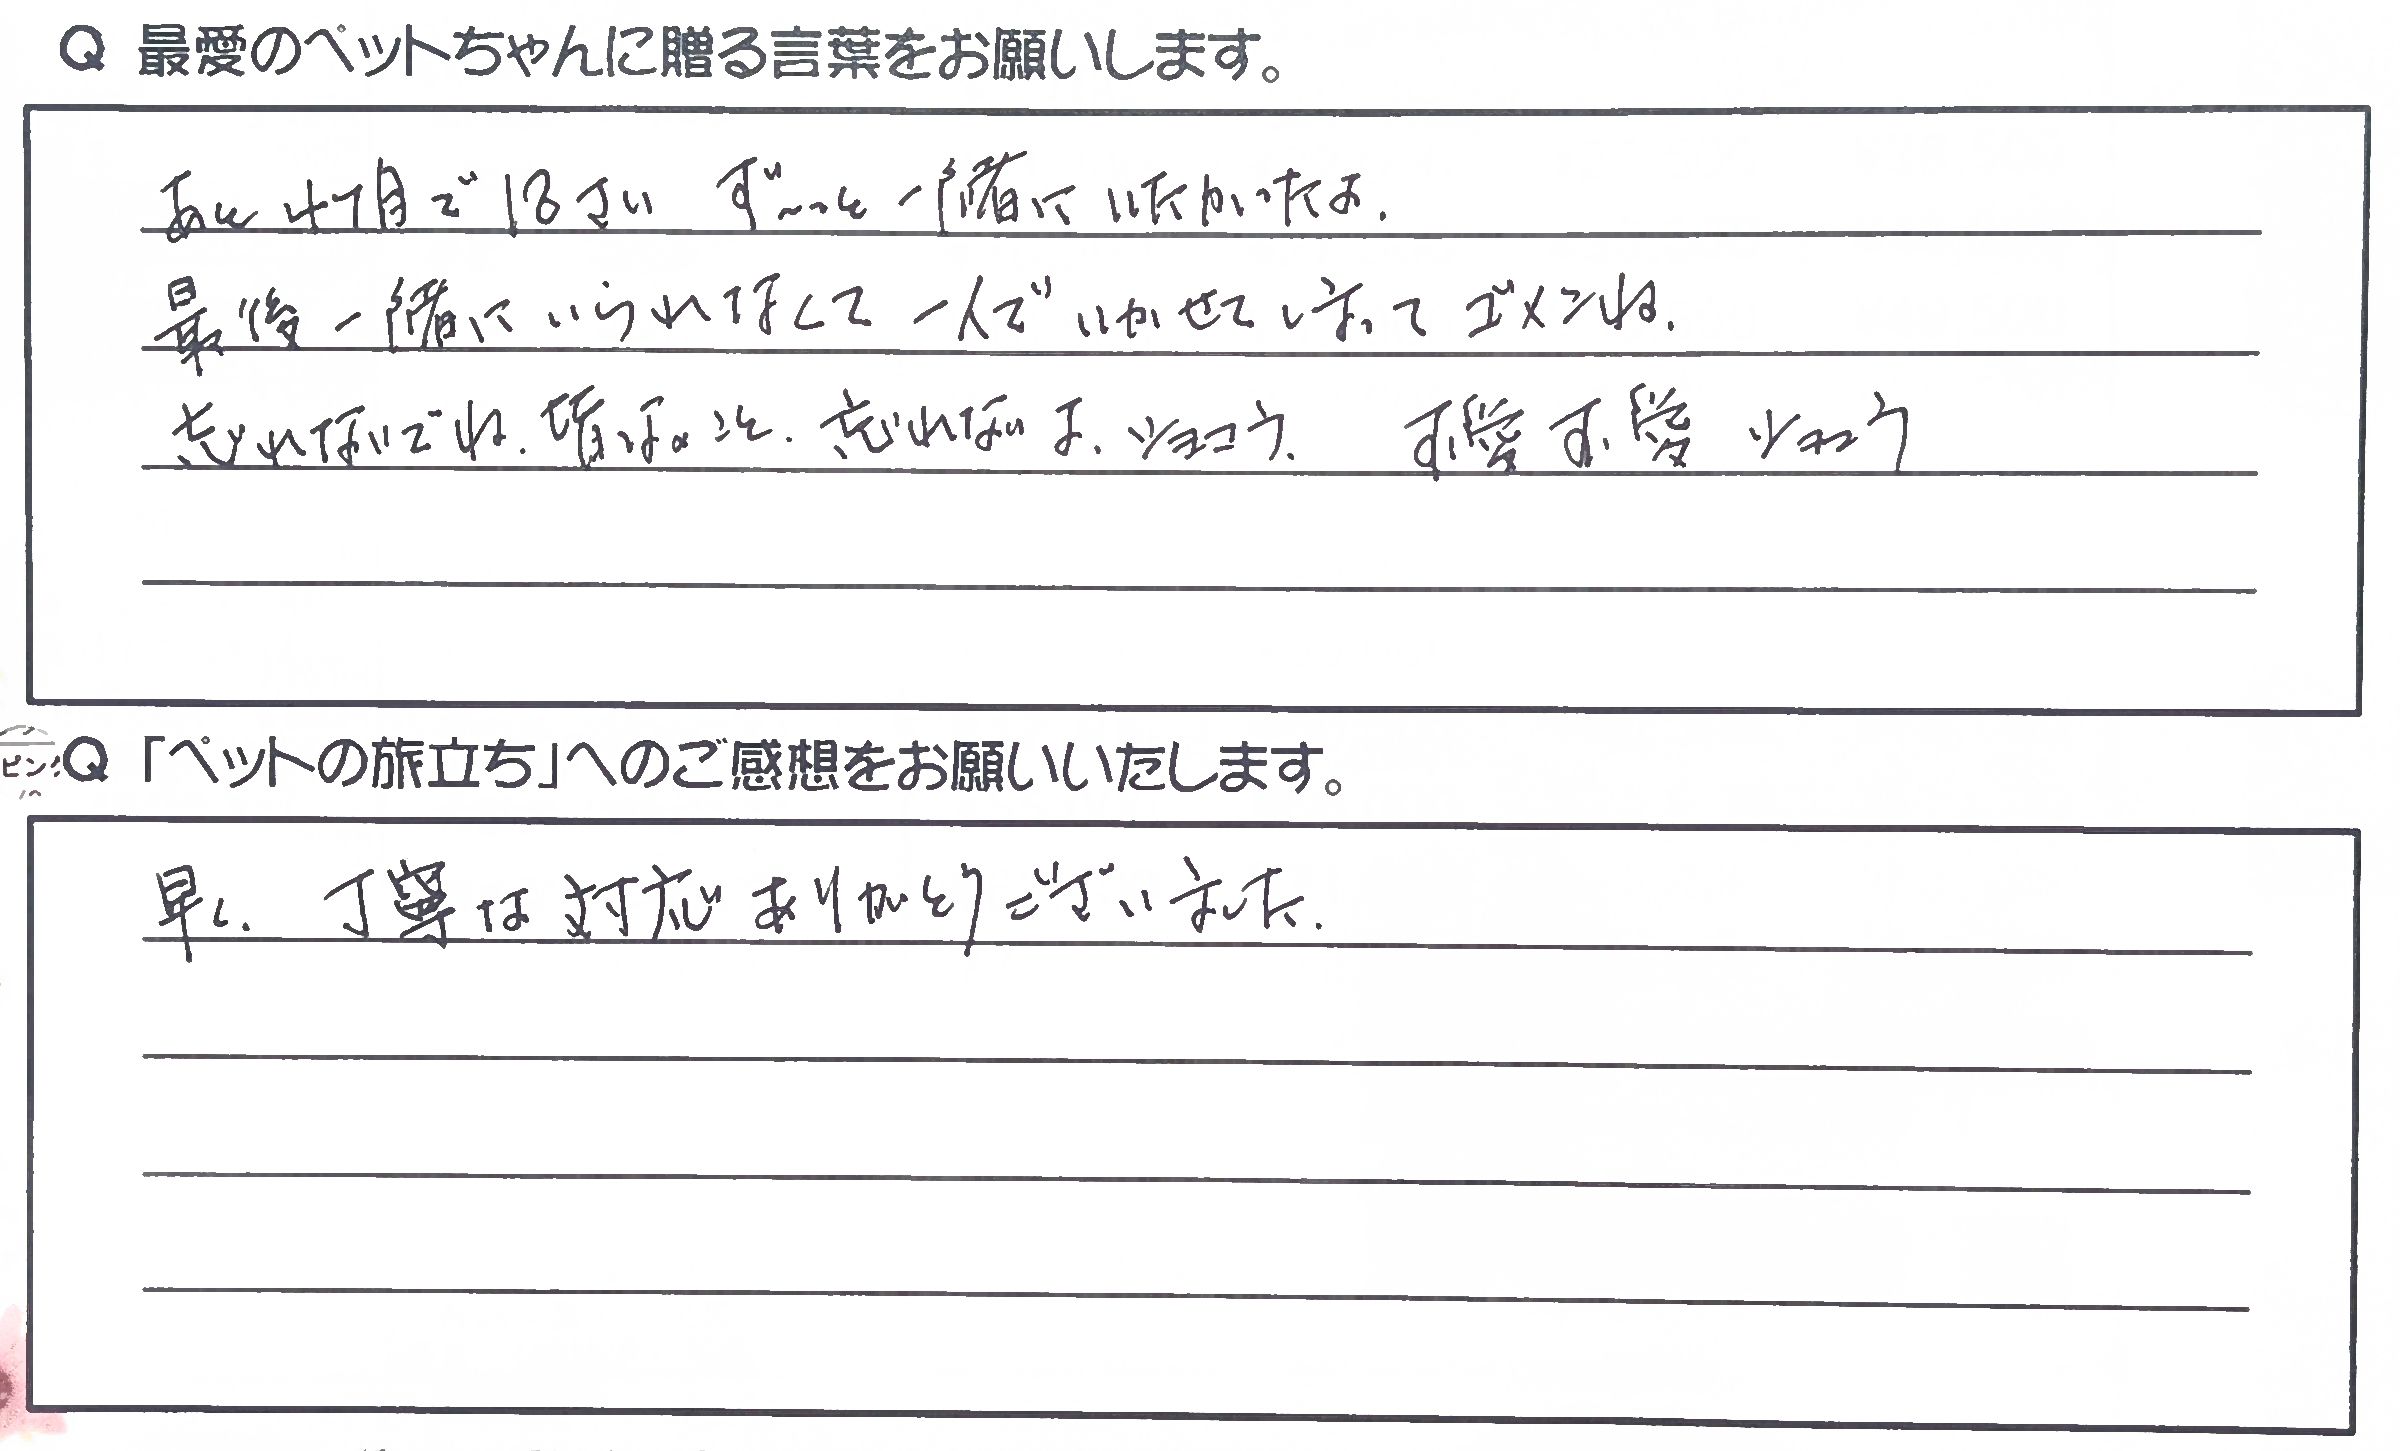 Q 最愛のペットちゃんに贈る言葉をお願いします。
あと4ヶ月で18さい ず〜っと一緒にいたかったよ.
最後一緒にいられなくて一人でいかせてしまってゴメンね.
忘れないでね. 忘れないよ. ショコラ. ショコラ
ピン
Q 「ペットの旅立ち」へのご感想をお願いいたします。
早く. 丁寧な対応ありがとうございました.